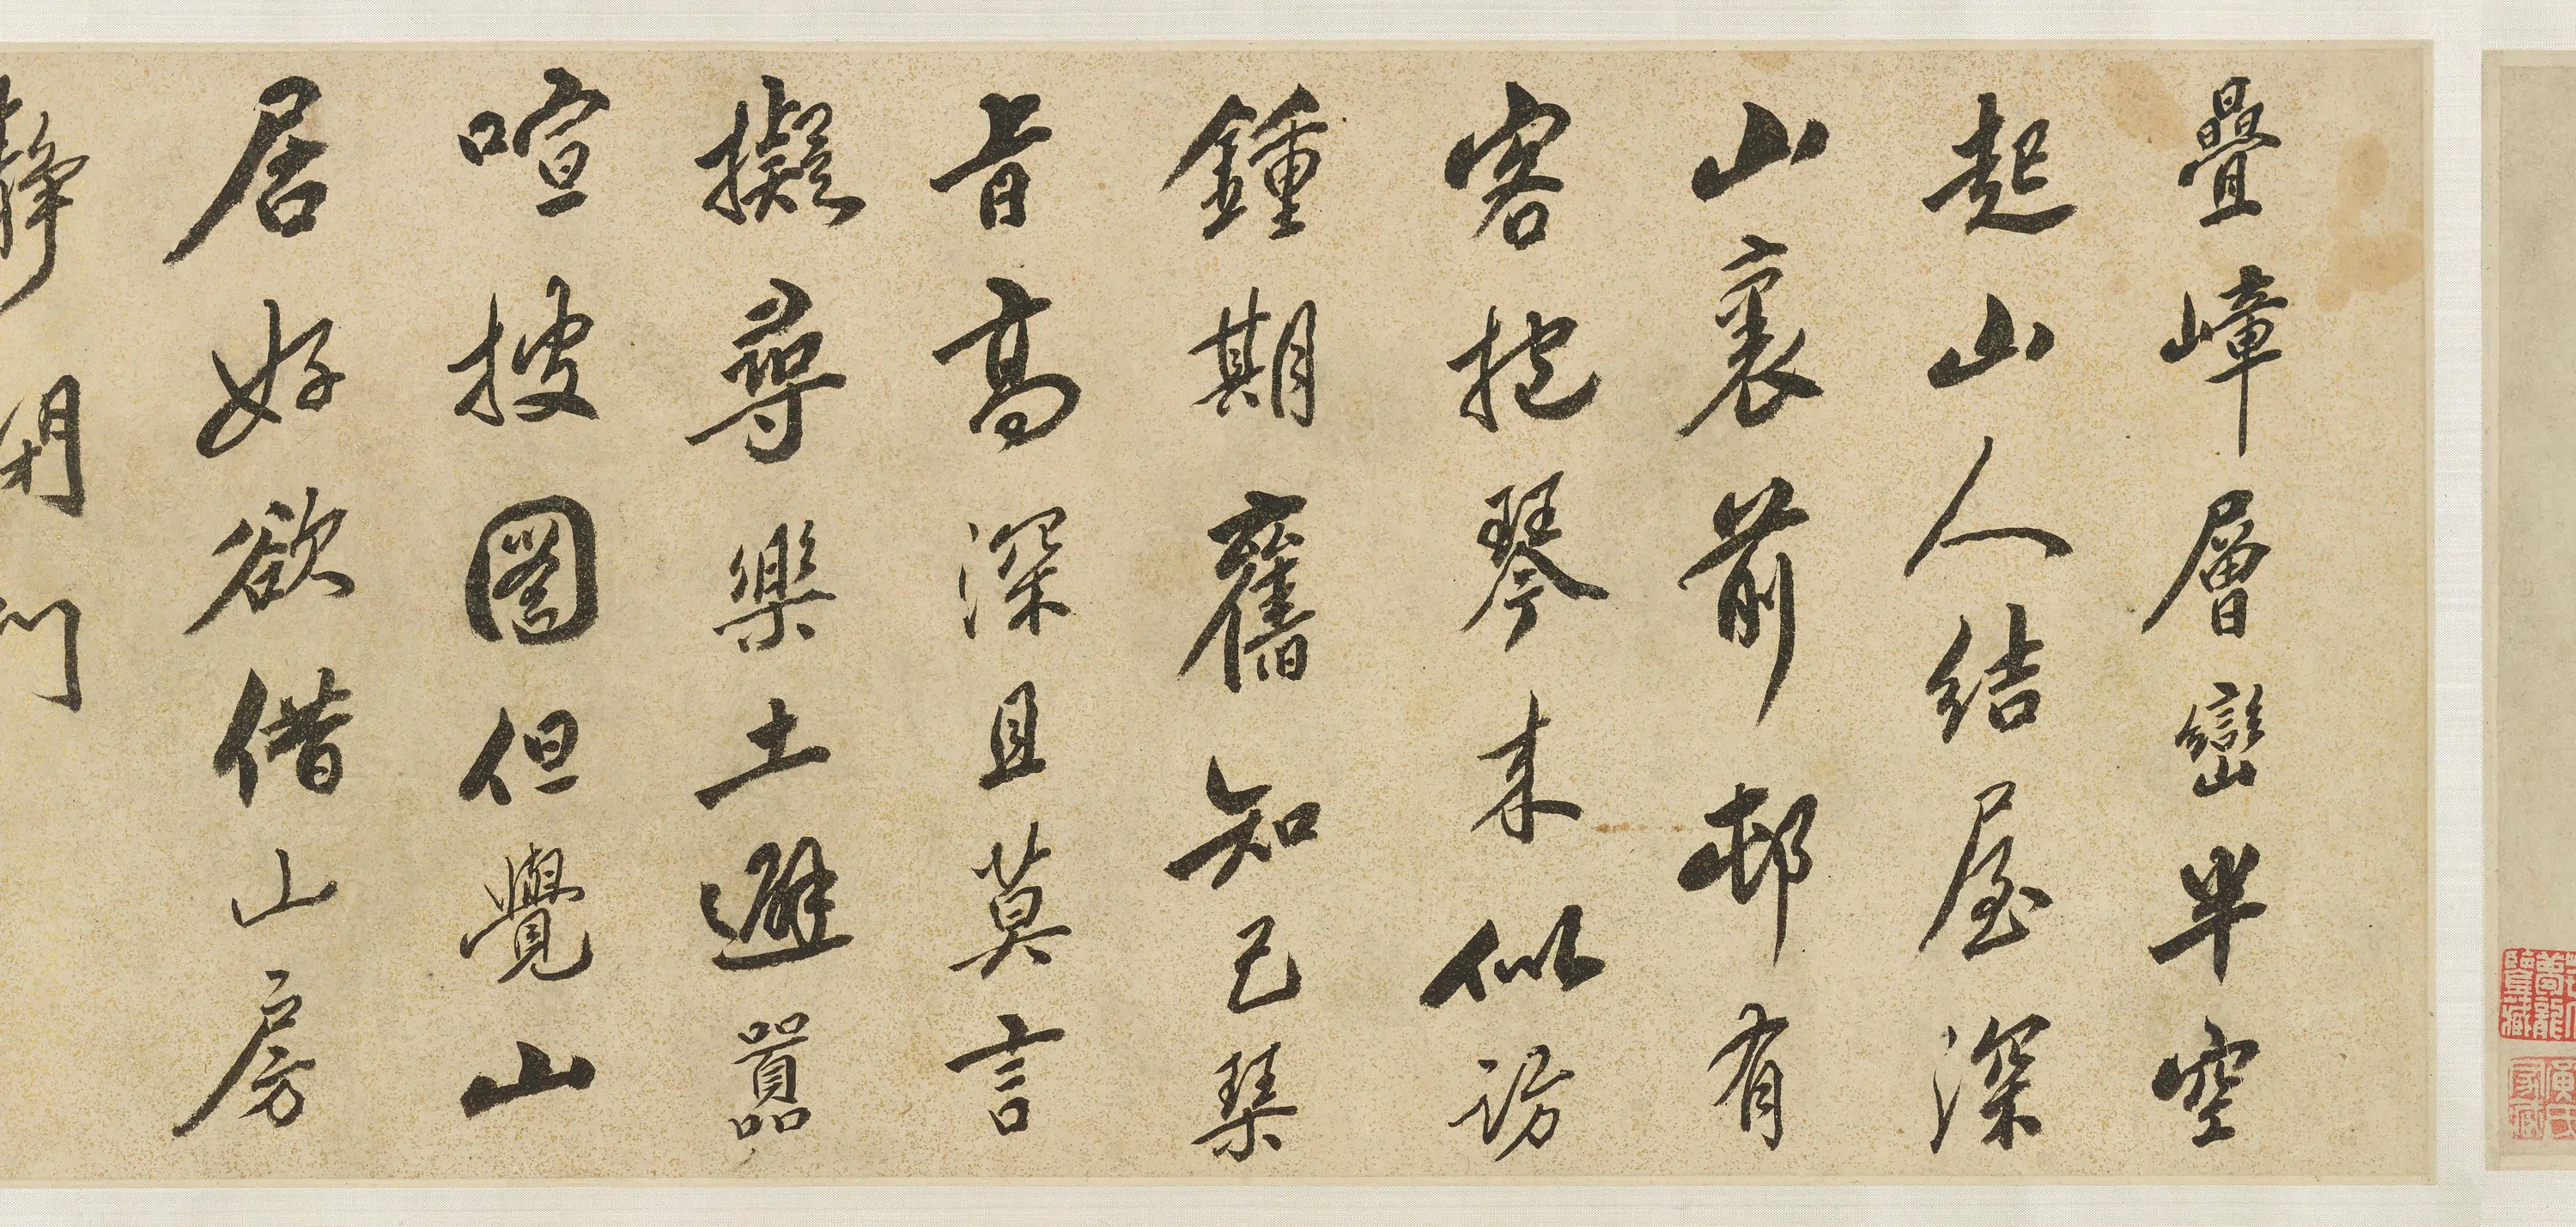 疊嶂層巒半空
起山人結屋深
山裏前邨有
客抱琴来似訪
鍾期舊知己琴
音高深且莫言
擬尋樂土避囂
喧披圖但覺山
居好欲借山房
靜閉門